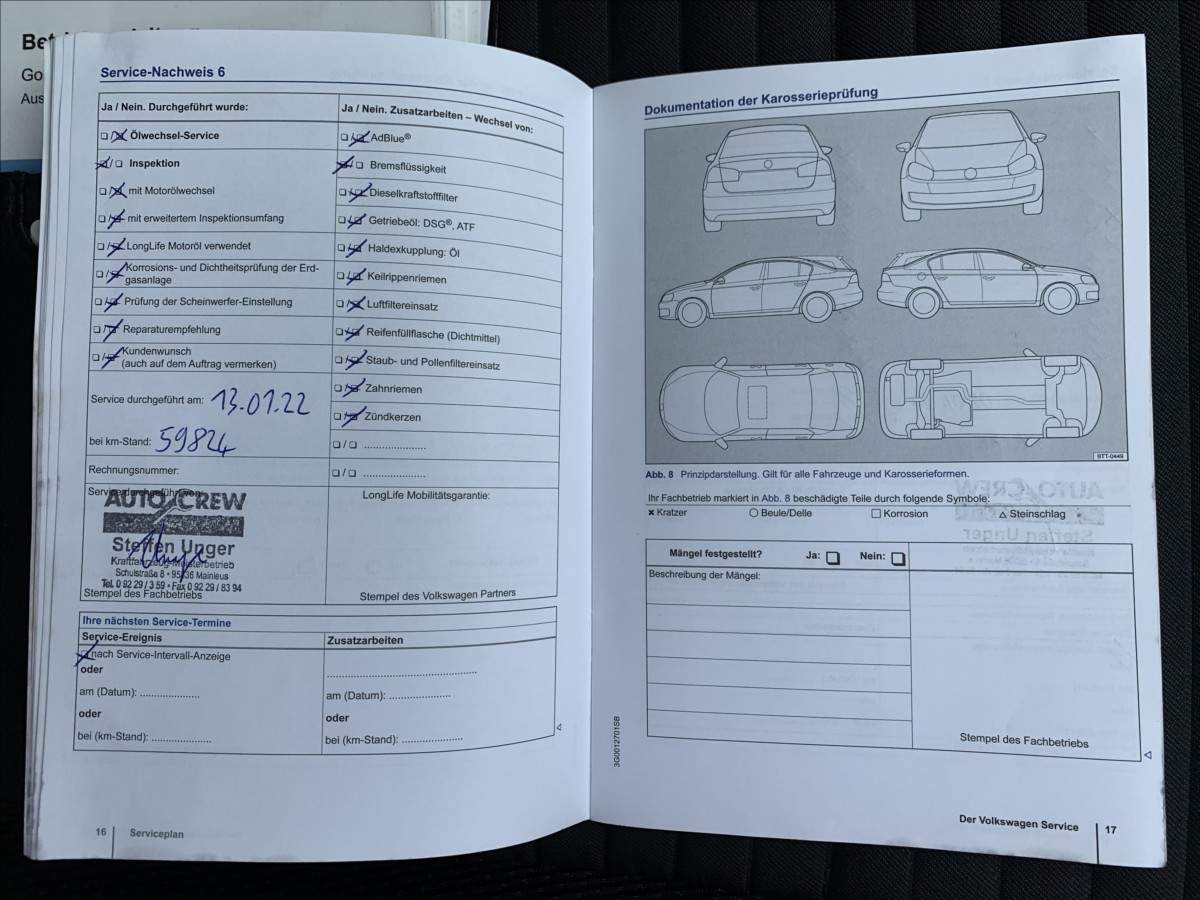 Go
Aus
Service-Nachweis 6
Ja / Nein. Durchgeführt wurde:
Ölwechsel-Service
Inspektion
mit Motorölwechsel
mit erweitertem Inspektionsumfang
LongLife Motoröl verwendet
Korrosions- und Dichtheitsprüfung der Erd-
gasanlage
Prüfung der Scheinwerfer-Einstellung
Reparaturempfehlung
Kundenwunsch
(auch auf dem Auftrag vermerken)
Service durchgeführt am: 13.01.22
bei km-Stand: 59824
Rechnungsnummer:
Service durchgeführt von:
AUTO CREW
Steffen Unger
Kraftfahrzeug-Meisterbetrieb
Schulstraße 8 • 95336 Mainleus
Tel. 0 92 29 / 3 59 • Fax 0 92 29 / 83 94
Stempel des Fachbetriebs
Ja / Nein. Zusatzarbeiten – Wechsel von:
AdBlue®
Bremsflüssigkeit
Dieselkraftstofffilter
Getriebeöl: DSG®, ATF
Haldexkupplung: Öl
Keilrippenriemen
Luftfiltereinsatz
Reifenfüllflasche (Dichtmittel)
Staub- und Pollenfiltereinsatz
Zahnriemen
Zündkerzen
❑ / ❑ ......................
❑ / ❑ ......................
LongLife Mobilitätsgarantie:
Stempel des Volkswagen Partners
Ihre nächsten Service-Termine
Service-Ereignis
nach Service-Intervall-Anzeige
oder
am (Datum): .....................
oder
bei (km-Stand): .....................
Zusatzarbeiten
.....................................................
am (Datum): .....................
oder
bei (km-Stand): .....................
16 Serviceplan
Dokumentation der Karosserieprüfung
BTT-0449
Abb. 8 Prinzipdarstellung. Gilt für alle Fahrzeuge und Karosserieformen.
Ihr Fachbetrieb markiert in Abb. 8 beschädigte Teile durch folgende Symbole:
× Kratzer ○ Beule/Delle □ Korrosion △ Steinschlag
Mängel festgestellt? Ja: ❑ Nein: ❑
Beschreibung der Mängel:
Stempel des Fachbetriebs
3G0012701SB
Der Volkswagen Service 17